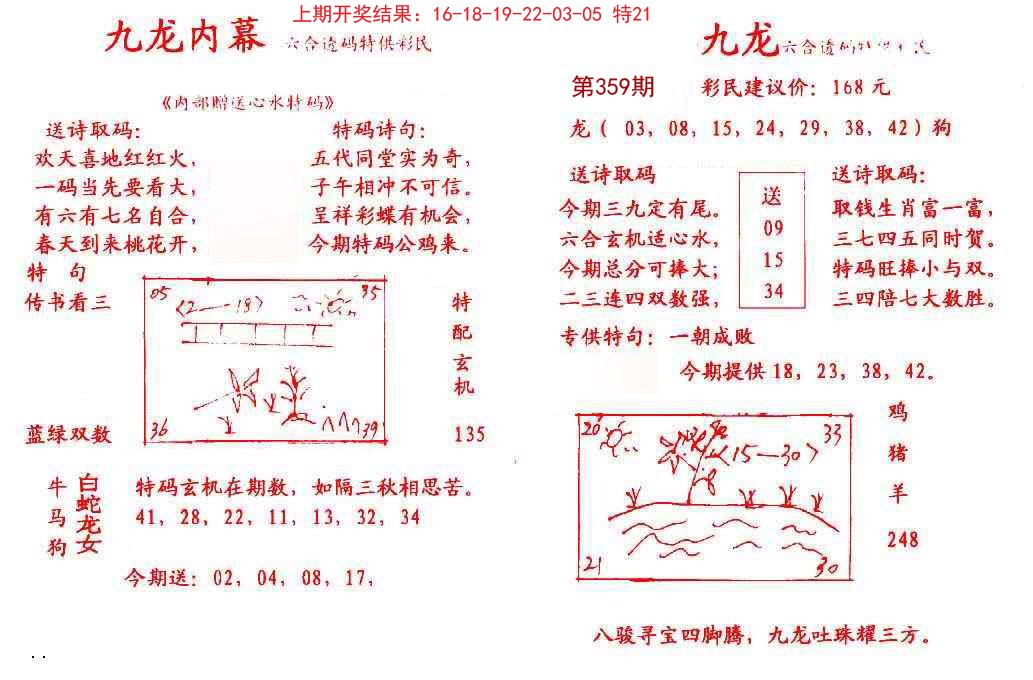 上期开奖结果：16-18-19-22-03-05 特21
九龙内幕 六合透码特供彩民
《内部赠送心水特码》
送诗取码：
欢天喜地红红火，
一码当先要看大，
有六有七名自合，
春天到来桃花开，
特码诗句：
五代同堂实为奇，
子午相冲不可信。
呈祥彩蝶有机会，
今期特码公鸡来。
特 句
传书看三
蓝绿双数
05
35
<2——18>
36
39
特
配
玄
机
135
牛
马
狗
白蛇龙女
特码玄机在期数，如隔三秋相思苦。
41，28，22，11，13，32，34
今期送：02，04，08，17，
九龙 六合透码
第359期
彩民建议价：168元
龙（ 03，08，15，24，29，38，42）狗
送诗取码
今期三九定有尾。
六合玄机适心水，
今期总分可捧大；
二三连四双数强，
送
09
15
34
送诗取码：
取钱生肖富一富，
三七四五同时贺。
特码旺捧小与双。
三四陪七大数胜。
专供特句：一朝成败
今期提供18，23，38，42。
20
33
<15—30>
21
30
鸡
猪
羊
248
八骏寻宝四脚腾，九龙吐珠耀三方。